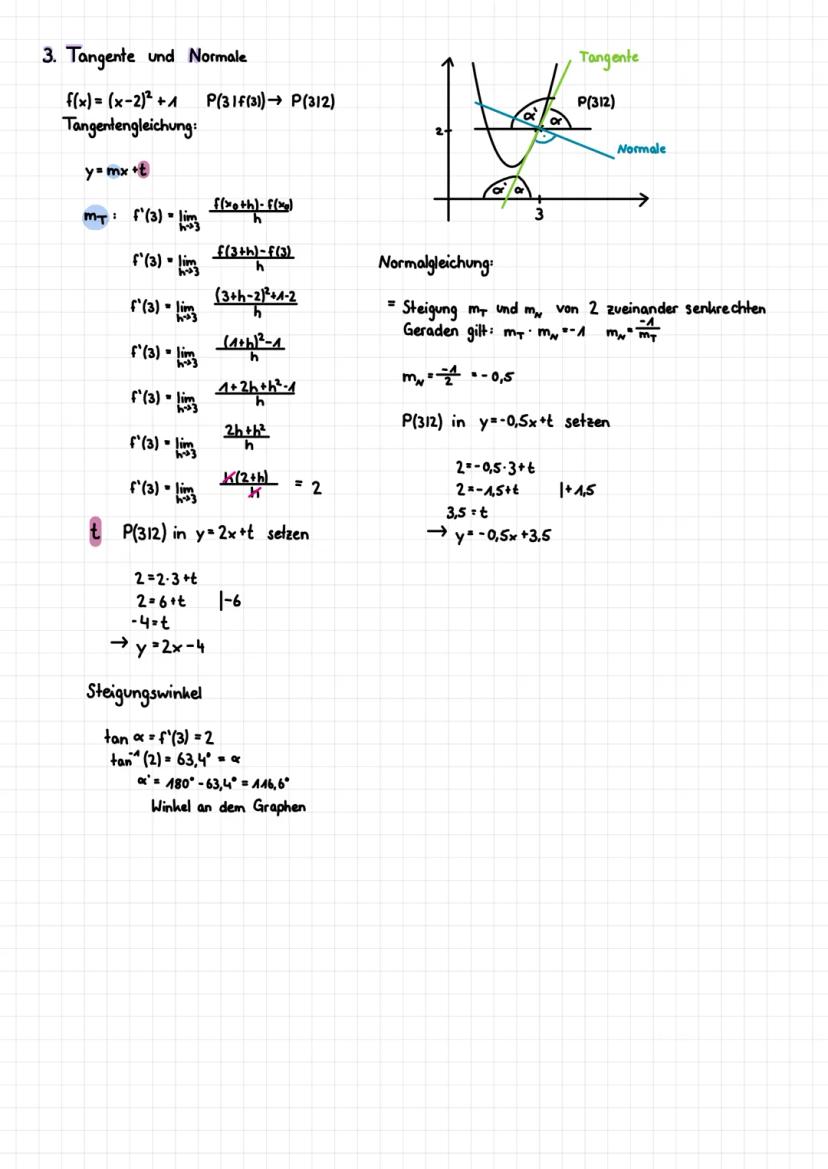 3. Tangente und Normale
f(x) = (x-2)² + 1 P(3|f(3)) → P(3|2)
Tangentengleichung:
y = mx + t
m_T : f'(3) = lim h→3 f(x₀+h) - f(x₀) / h
f'(3) = lim h→3 f(3+h) - f(3) / h
f'(3) = lim h→3 (3+h-2)²+1-2 / h
f'(3) = lim h→3 (1+h)² - 1 / h
f'(3) = lim h→3 1+2h+h²-1 / h
f'(3) = lim h→3 2h+h² / h
f'(3) = lim h→3 h(2+h) / h = 2
t P(3|2) in y = 2x+t setzen
2 = 2·3+t
2 = 6+t |-6
-4 = t
→ y = 2x - 4
Steigungswinkel
tan α = f'(3) = 2
tan⁻¹ (2) = 63,4° = α
α' = 180° - 63,4° = 116,6°
Winkel an dem Graphen
Tangente
P(3|2)
α' α
2
Normale
α' α
3
Normalgleichung:
= Steigung m_T und m_N von 2 zueinander senkrechten
Geraden gilt: m_T · m_N = -1 m_N = -1 / m_T
m_N = -1 / 2 = -0,5
P(3|2) in y = -0,5x+t setzen
2 = -0,5·3+t
2 = -1,5+t |+1,5
3,5 = t
→ y = -0,5x + 3,5